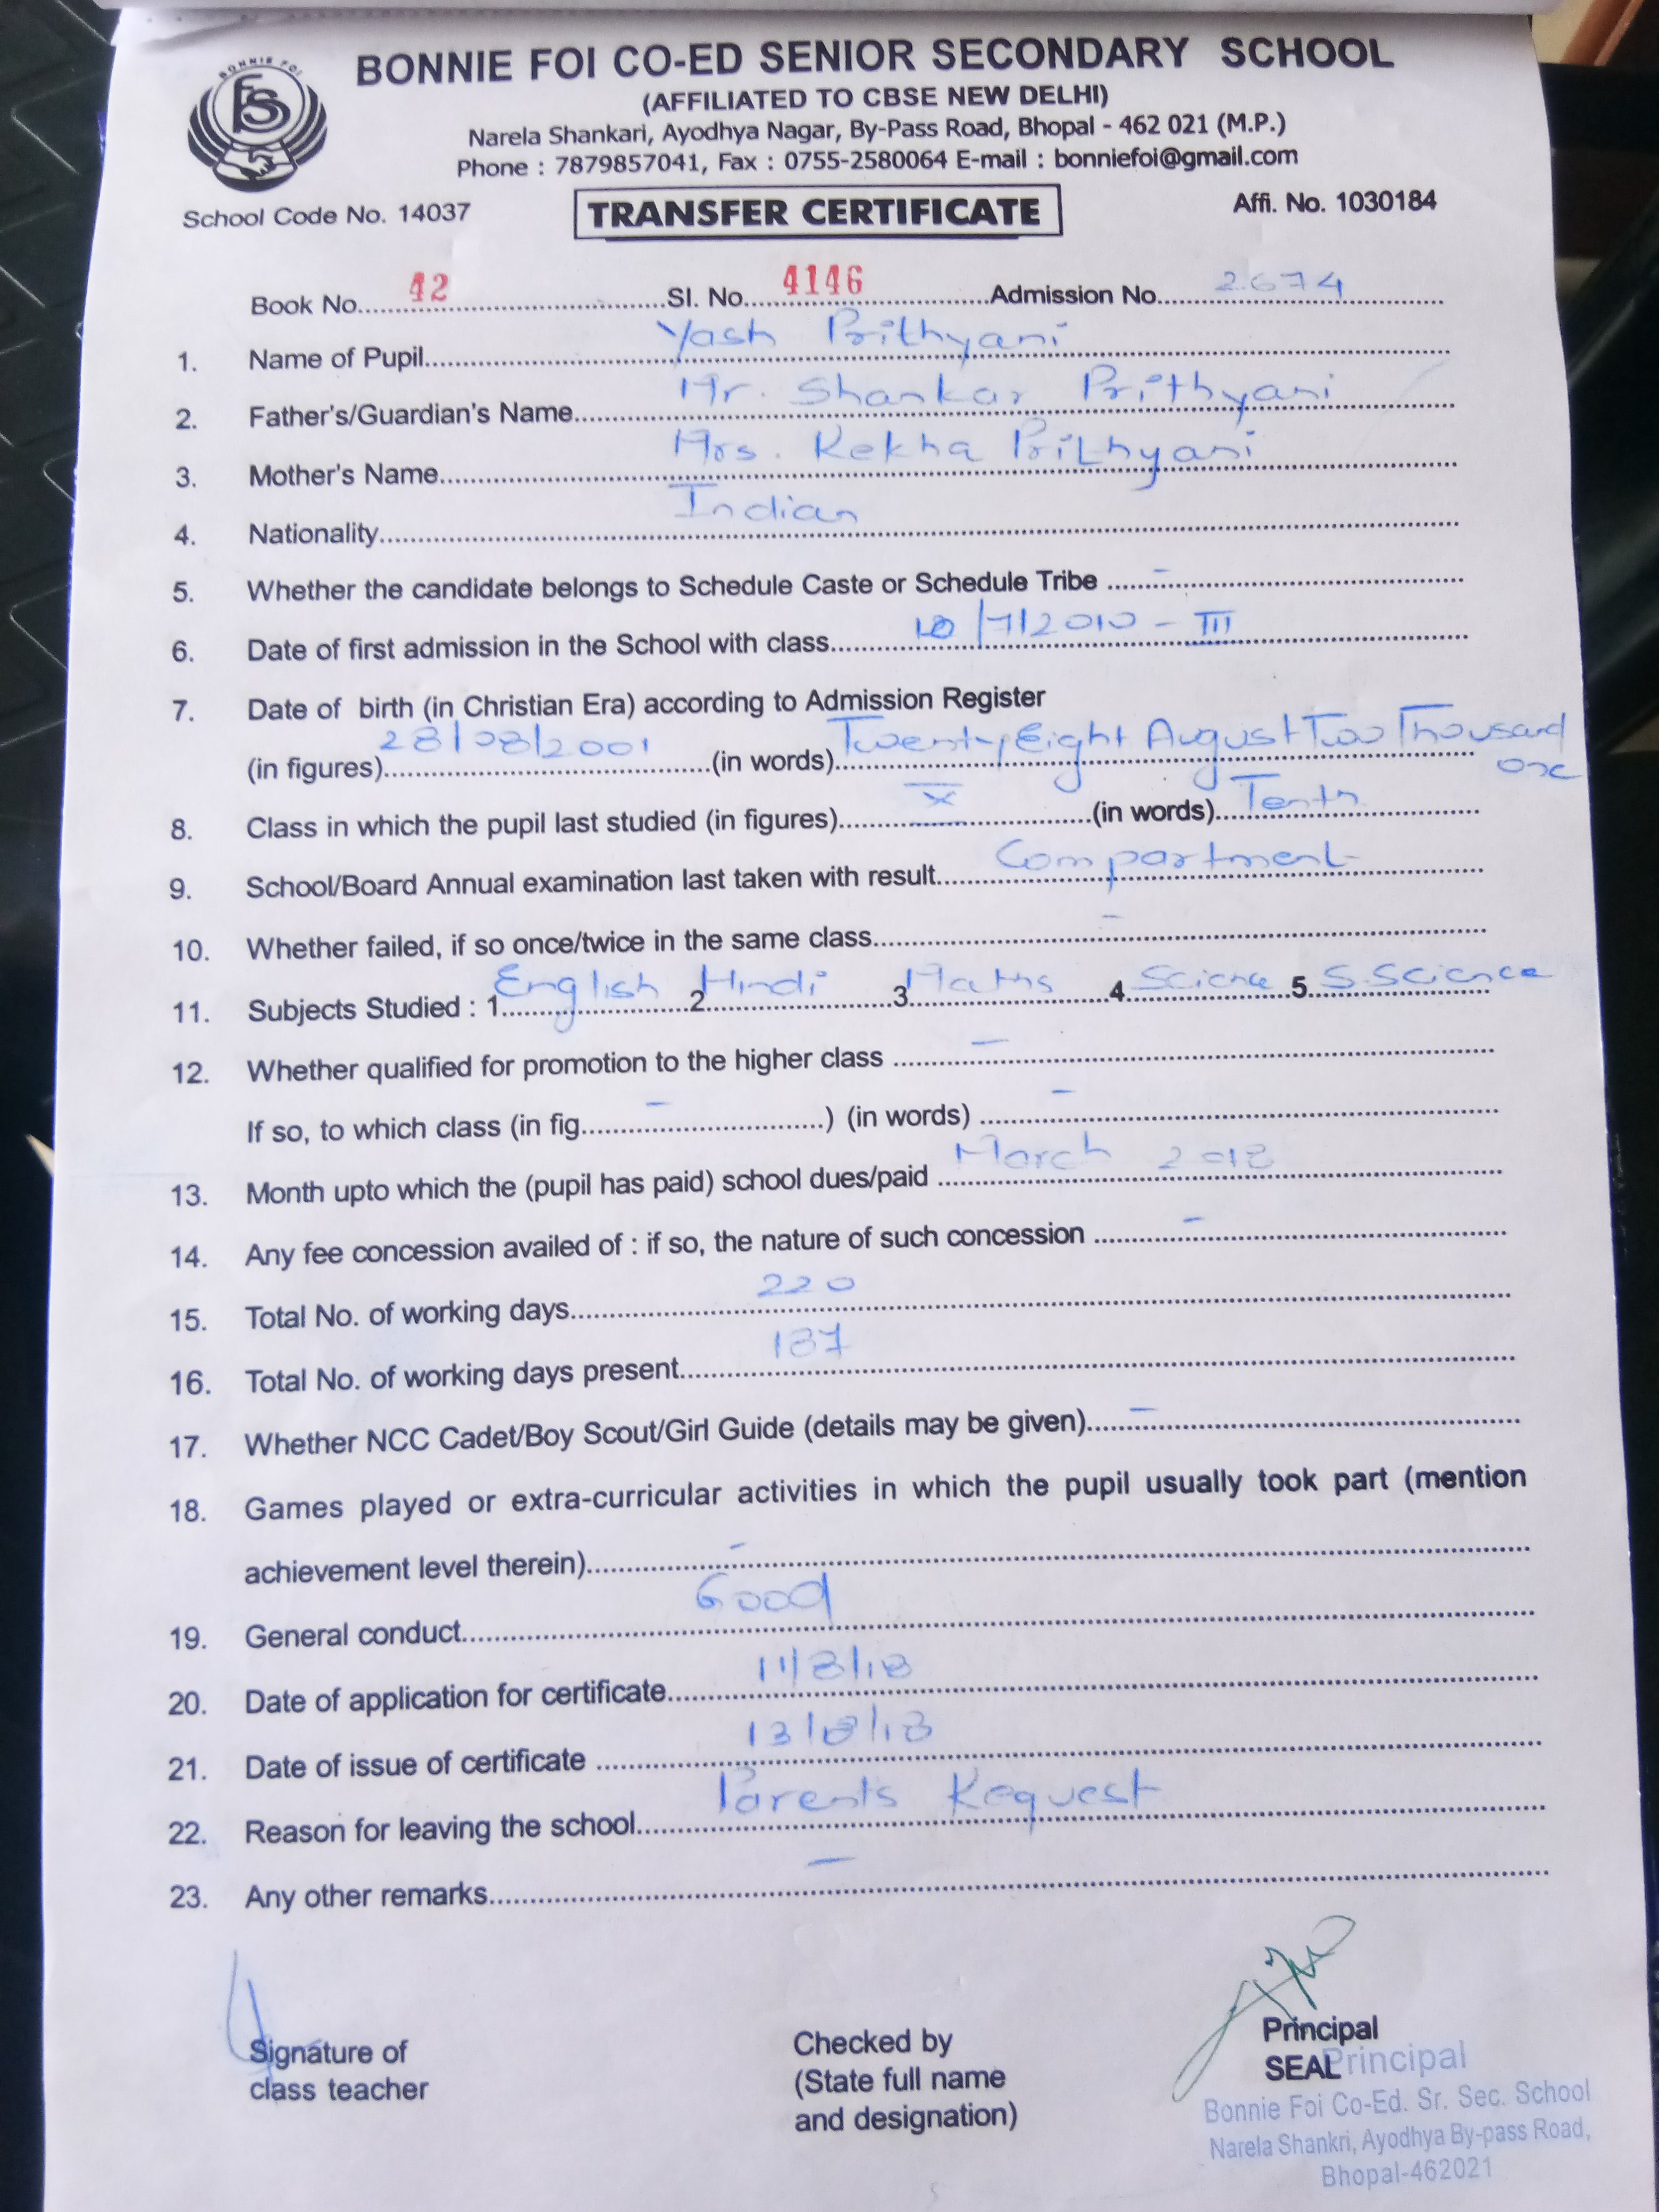 BONNIE FOI
FSS
BONNIE FOI CO-ED SENIOR SECONDARY SCHOOL
(AFFILIATED TO CBSE NEW DELHI)
Narela Shankari, Ayodhya Nagar, By-Pass Road, Bhopal - 462 021 (M.P.)
Phone : 7879857041, Fax : 0755-2580064 E-mail : bonniefoi@gmail.com
School Code No. 14037 TRANSFER CERTIFICATE Affi. No. 1030184
Book No. 42 Sl. No. 4146 Admission No. 2674
1. Name of Pupil Yash Prithyani
2. Father's/Guardian's Name Mr. Shankar Prithyani
3. Mother's Name Mrs. Rekha Prithyani
4. Nationality Indian
5. Whether the candidate belongs to Schedule Caste or Schedule Tribe -
6. Date of first admission in the School with class 10/7/2010 - III
7. Date of birth (in Christian Era) according to Admission Register
(in figures) 28/08/2001 (in words) Twenty Eight August Two Thousand
one
8. Class in which the pupil last studied (in figures) X (in words) Tenth
9. School/Board Annual examination last taken with result Compartment
10. Whether failed, if so once/twice in the same class -
11. Subjects Studied : 1 English 2 Hindi 3 Maths 4 Science 5. S.Science
12. Whether qualified for promotion to the higher class -
If so, to which class (in fig. - ) (in words) -
13. Month upto which the (pupil has paid) school dues/paid March 2018
14. Any fee concession availed of : if so, the nature of such concession -
15. Total No. of working days 220
16. Total No. of working days present 187
17. Whether NCC Cadet/Boy Scout/Girl Guide (details may be given) -
18. Games played or extra-curricular activities in which the pupil usually took part (mention
achievement level therein) -
19. General conduct Good
20. Date of application for certificate 11/8/18
21. Date of issue of certificate 13/8/18
22. Reason for leaving the school Parents Request
23. Any other remarks -
Signature of
class teacher
Checked by
(State full name
and designation)
Principal
SEAL
Principal
Bonnie Foi Co-Ed. Sr. Sec. School
Narela Shankri, Ayodhya By-pass Road,
Bhopal-462021